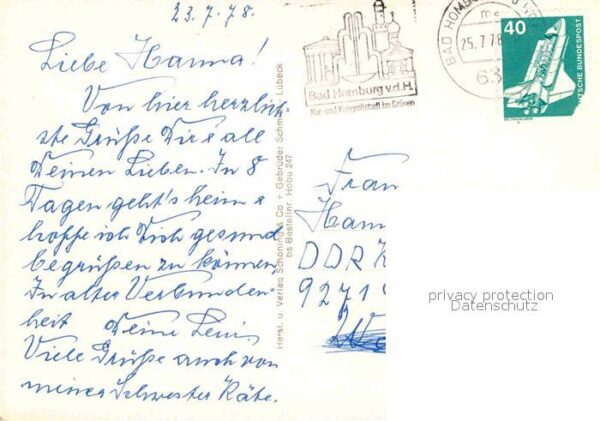 23.7.78.
Liebe Hanna!
Von hier herzlich-
ste Grüße Dir & all
Deinen Lieben. In 8
Tagen geht's heim &
hoffe ich Dich gesund
begrüßen zu können.
In alter Verbunden-
heit Deine Leni.
Viele Grüße auch von
meiner Schwester Käte.
Herst. u. Verlag Schöning & Co + Gebrüder Schmidt, Lübeck
bs Bestellnr. Hobu 247
Bad Homburg v.d.H.
Kur- und Kongreßstadt im Grünen
BAD HOMBURG
25.7.78
63
40
DEUTSCHE BUNDESPOST
Frau
Hanna
DDR
9271
privacy protection
Datenschutz